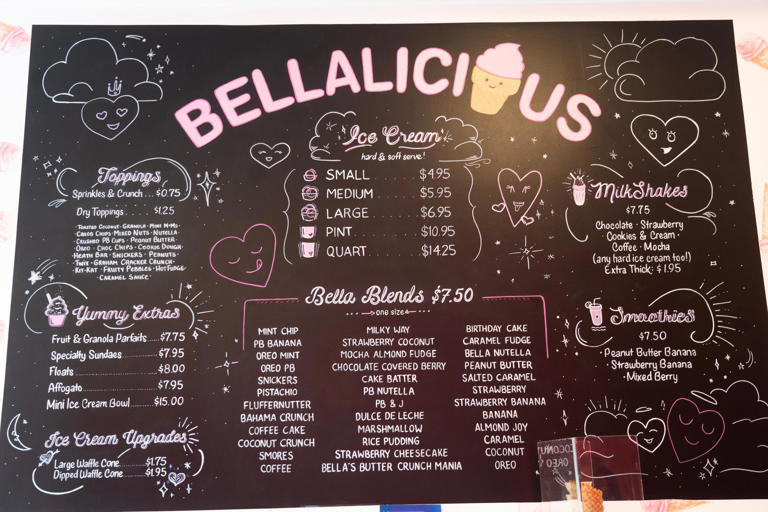 BELLALICIOUS
Ice Cream
hard & soft serve!
SMALL $4.95
MEDIUM $5.95
LARGE $6.95
PINT $10.95
QUART $14.25
Toppings
Sprinkles & Crunch $0.75
Dry Toppings $1.25
TOASTED COCONUT · GRANOLA · MINI M+MS ·
CHIPS · MIXED NUTS · NUTELLA
CRUSHED PB CUPS · PEANUT BUTTER ·
OREO · CHOC CHIPS · COOKIE DOUGH
HEATH BAR · SNICKERS · PEANUTS ·
TWIX · GRAHAM CRACKER CRUNCH ·
KIT-KAT · FRUITY PEBBLES · HOT FUDGE
CARAMEL SAUCE ·
Yummy Extras
Fruit & Granola Parfaits $7.75
Specialty Sundaes $7.95
Floats $8.00
Affogato $7.95
Mini Ice Cream Bowl $15.00
Ice Cream Upgrades
Large Waffle Cone $1.75
Dipped Waffle Cone $1.95
Bella Blends $7.50
one size
MINT CHIP
PB BANANA
OREO MINT
OREO PB
SNICKERS
PISTACHIO
FLUFFERNUTTER
BAHAMA CRUNCH
COFFEE CAKE
COCONUT CRUNCH
SMORES
COFFEE
MILKY WAY
STRAWBERRY COCONUT
MOCHA ALMOND FUDGE
CHOCOLATE COVERED BERRY
CAKE BATTER
PB NUTELLA
PB & J
DULCE DE LECHE
MARSHMALLOW
RICE PUDDING
STRAWBERRY CHEESECAKE
BELLA'S BUTTER CRUNCH MANIA
BIRTHDAY CAKE
CARAMEL FUDGE
BELLA NUTELLA
PEANUT BUTTER
SALTED CARAMEL
STRAWBERRY
STRAWBERRY BANANA
BANANA
ALMOND JOY
CARAMEL
COCONUT
OREO
MilkShakes
$7.75
Chocolate · Strawberry
Cookies & Cream ·
Coffee · Mocha
(any hard ice cream too!)
Extra Thick: $1.95
Smoothies
$7.50
· Peanut Butter Banana
· Strawberry Banana
· Mixed Berry